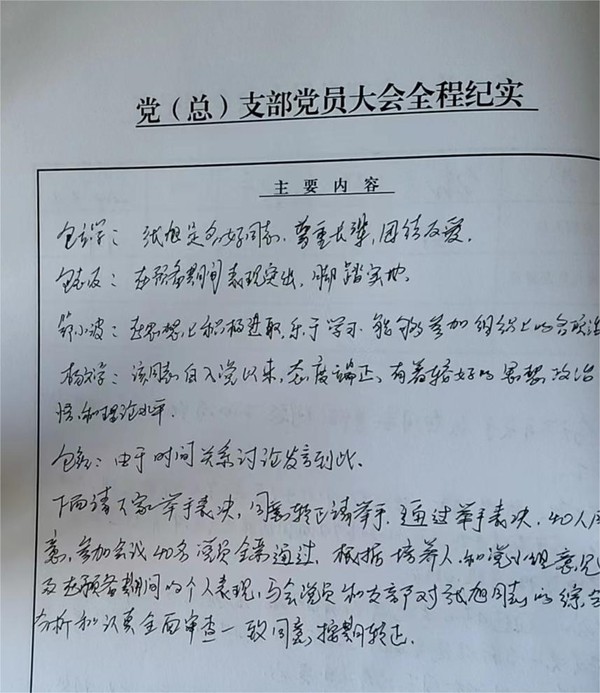 党（总）支部党员大会全程纪实
主要内容
包 ：张旭是名好同志，尊重长辈，团结友爱。
包志友：在预备期间表现突出，脚踏实地。
小波：在思想上积极进取，乐于学习，能够参加组织上的各项活
杨文学：该同志自入党以来，态度端正，有着较好的思想政治
悟和理论水平。
包 ：由于时间关系讨论发言到此。
下面请大家举手表决，同意转正请举手。通过举手表决，40人同
意，参加会议40名党员全票通过。根据培养人和党小组意见
及在预备期间的个人表现，与会党员和支部对张旭同志的综合
分析和认真全面审查一致同意，按期转正。